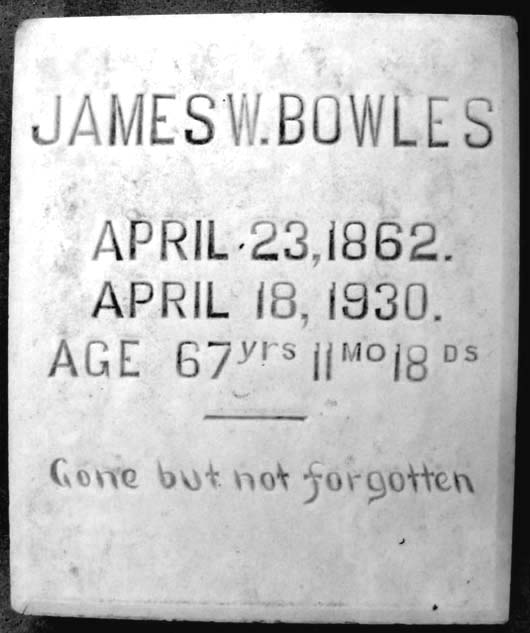 JAMES W. BOWLES
APRIL 23, 1862.
APRIL 18, 1930.
AGE 67 yrs 11 MO 18 DS
Gone but not forgotten